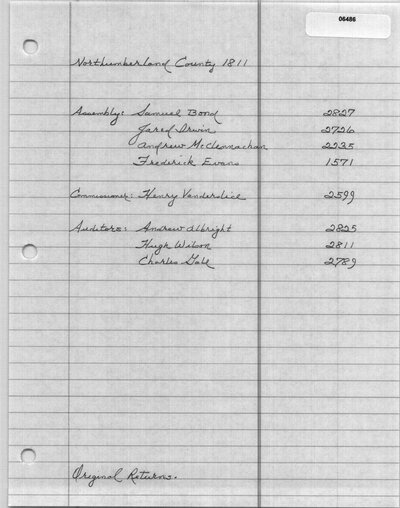 06486
Northumberland County 1811
Assembly: Samuel Bond 2827
Jared Irwin 2726
Andrew McClennachan 2235
Frederick Evans 1571
Commissioner: Henry Vanderslice 2599
Auditors: Andrew Albright 2825
Hugh Wilson 2811
Charles Gale 2789
Original Returns.